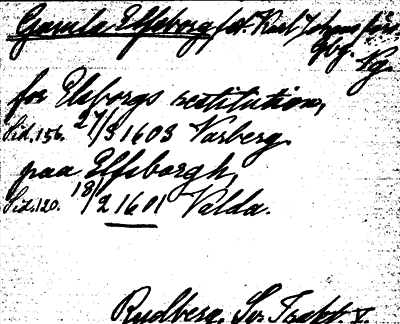 Gamla Elfsborg, f.d. Karl Johans förs.
Gbg. Lg.
for Elsborgs restitution,
Sid. 156. 27/3 1603 Varberg.
paa Elfsborgh,
Sid. 120. 18/2 1601 Valda.
Rydberg, Sv. Trakt. V.